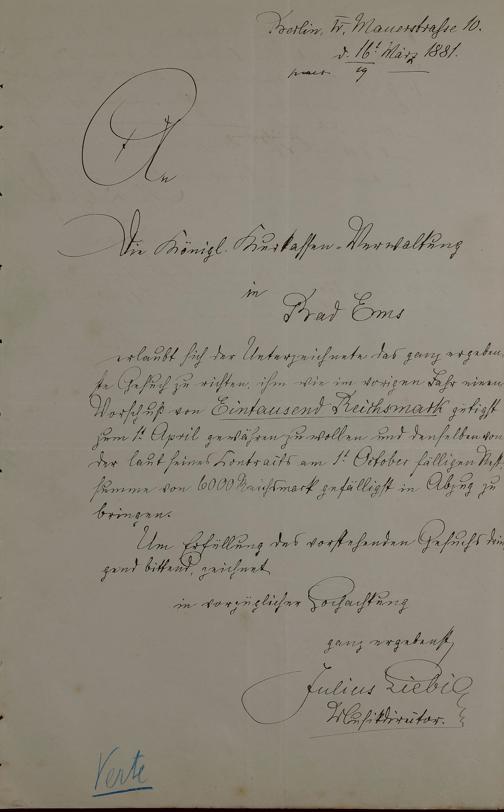 Berlin, W. Mauerstrasse 10.
d. 16t März 1881.
praes. 19
An
Die Königl. Kurkassen-Verwaltung
in
Bad Ems
erlaubt sich der Unterzeichnete das ganz ergeben-
ste Gesuch zu richten, ihm wie im vorigen Jahr einen
Vorschuß von Eintausend Reichsmark gütigst
zum 1t April gewähren zu wollen und denselben von
der laut seines Contracts am 1t October fälligen Rest-
summe von 6000 Reichsmark gefälligst in Abzug zu
bringen.
Um Erfüllung des vorstehenden Gesuchs drin-
gend bittend, zeichnet
in vorzüglicher Hochachtung
ganz ergebenst
Julius
Musikdirector.
Verte